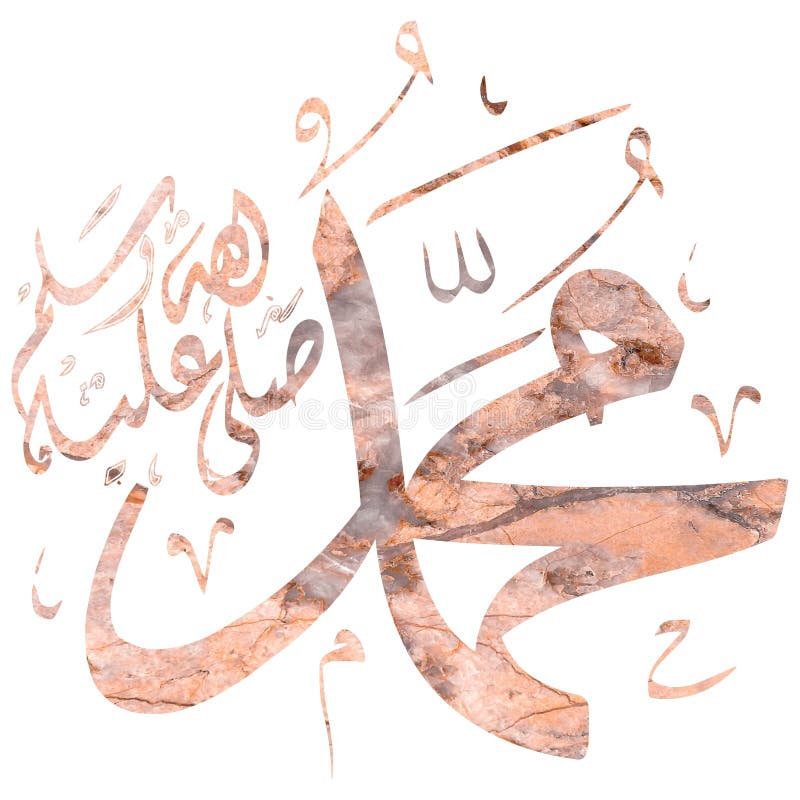 مُحَمَّد
صلى الله عليه وسلم
dreamstime